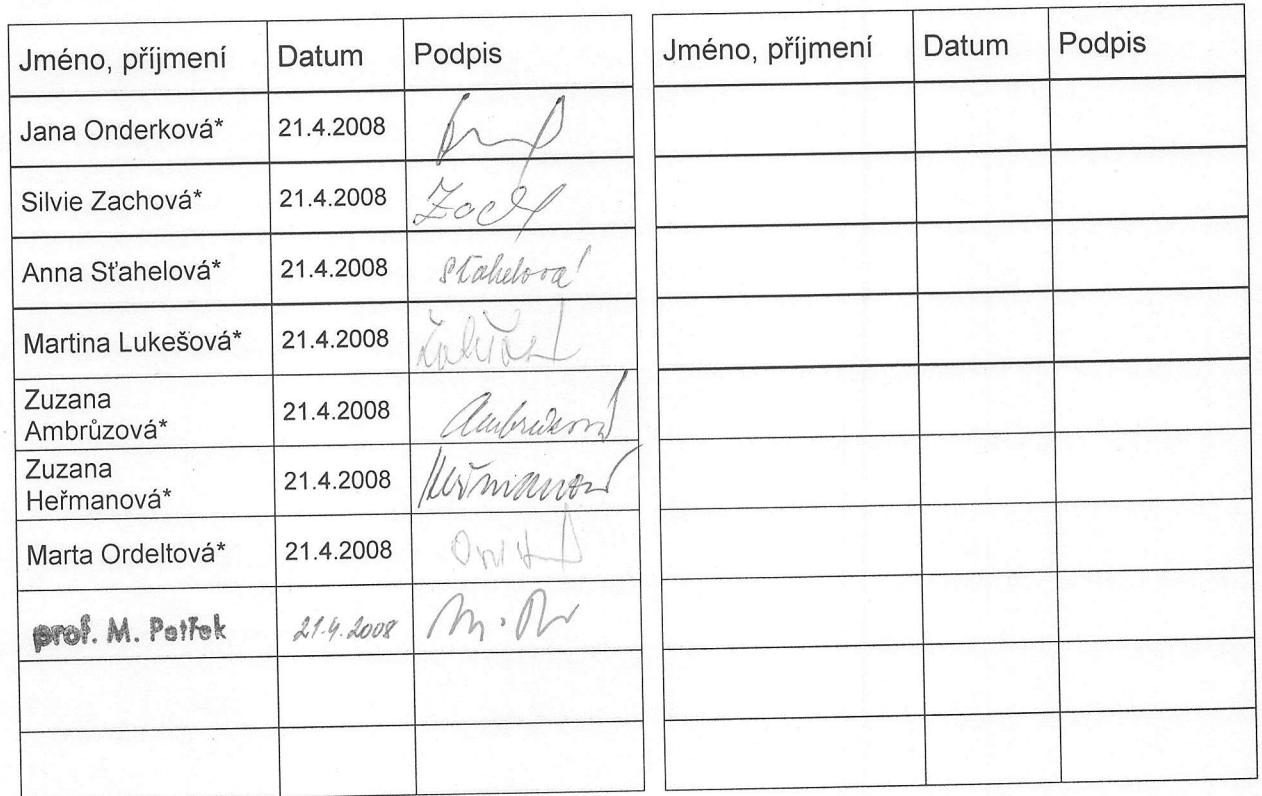 Jméno, příjmení Datum Podpis
Jana Onderková* 21.4.2008
Silvie Zachová* 21.4.2008
Anna Sťahelová* 21.4.2008 Sťahelová
Martina Lukešová* 21.4.2008
Zuzana
Ambrůzová* 21.4.2008 Ambrůzová
Zuzana
Heřmanová* 21.4.2008 Heřmanová
Marta Ordeltová* 21.4.2008
prof. M. Petřek 21.4.2008
Jméno, příjmení Datum Podpis